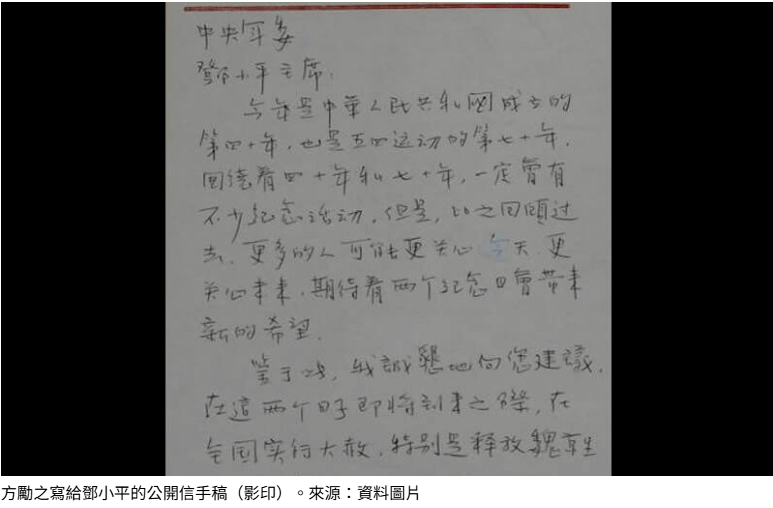 中央军委
邓小平主席,
今年是中華人民共和國成立的
第四十年,也是五四运动的第七十年.
回绕着四十年和七十年,一定會有
不少纪念活动,但是,比之回顧过
去,更多的人可能更关心今天,更
关心未来,期待着两个纪念日會带来
新的希望.
鉴于此,我誠懇地向您建議,
在這两个日子即将到来之際,在
全国实行大赦,特别是释放魏京生
方勵之寫給鄧小平的公開信手稿（影印）。來源：資料圖片